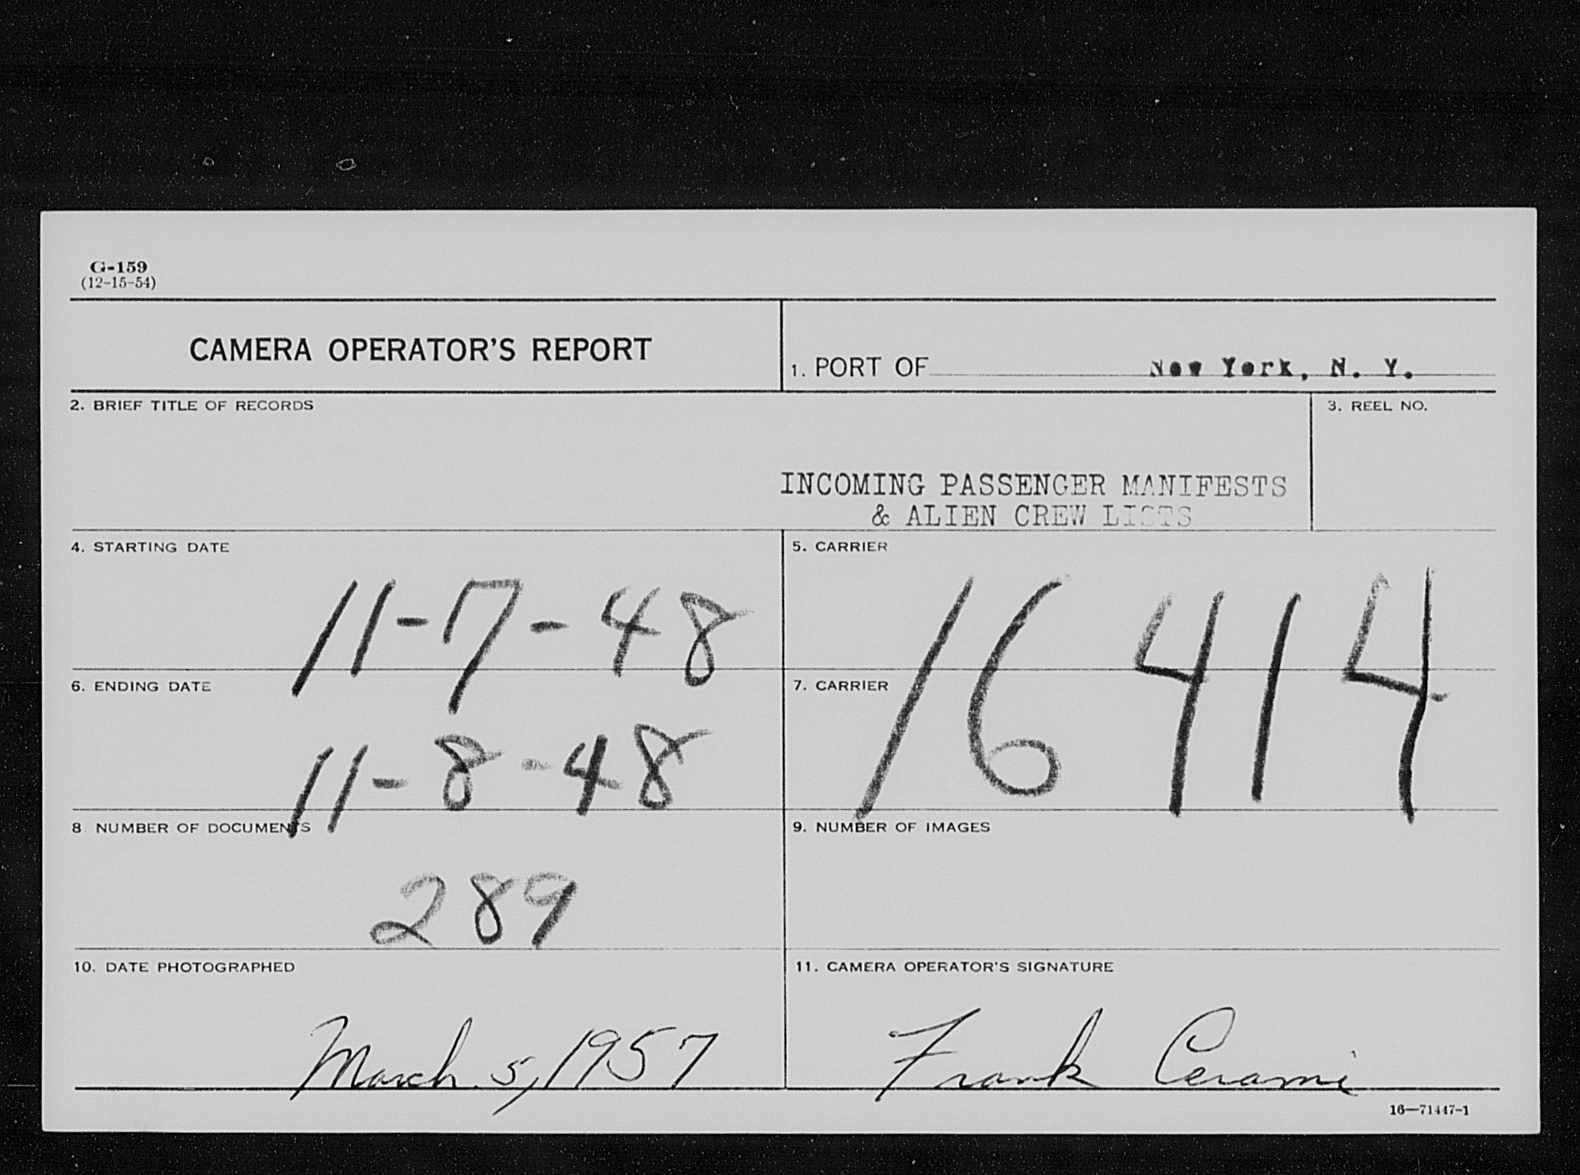 G-159
(12-15-54)
CAMERA OPERATOR'S REPORT
1. PORT OF New York, N. Y.
2. BRIEF TITLE OF RECORDS
3. REEL NO.
INCOMING PASSENGER MANIFESTS
& ALIEN CREW LISTS
4. STARTING DATE
11-7-48
5. CARRIER
16414
6. ENDING DATE
11-8-48
7. CARRIER
8 NUMBER OF DOCUMENTS
289
9. NUMBER OF IMAGES
10. DATE PHOTOGRAPHED
March 5, 1957
11. CAMERA OPERATOR'S SIGNATURE
Frank Cerami
16—71447-1